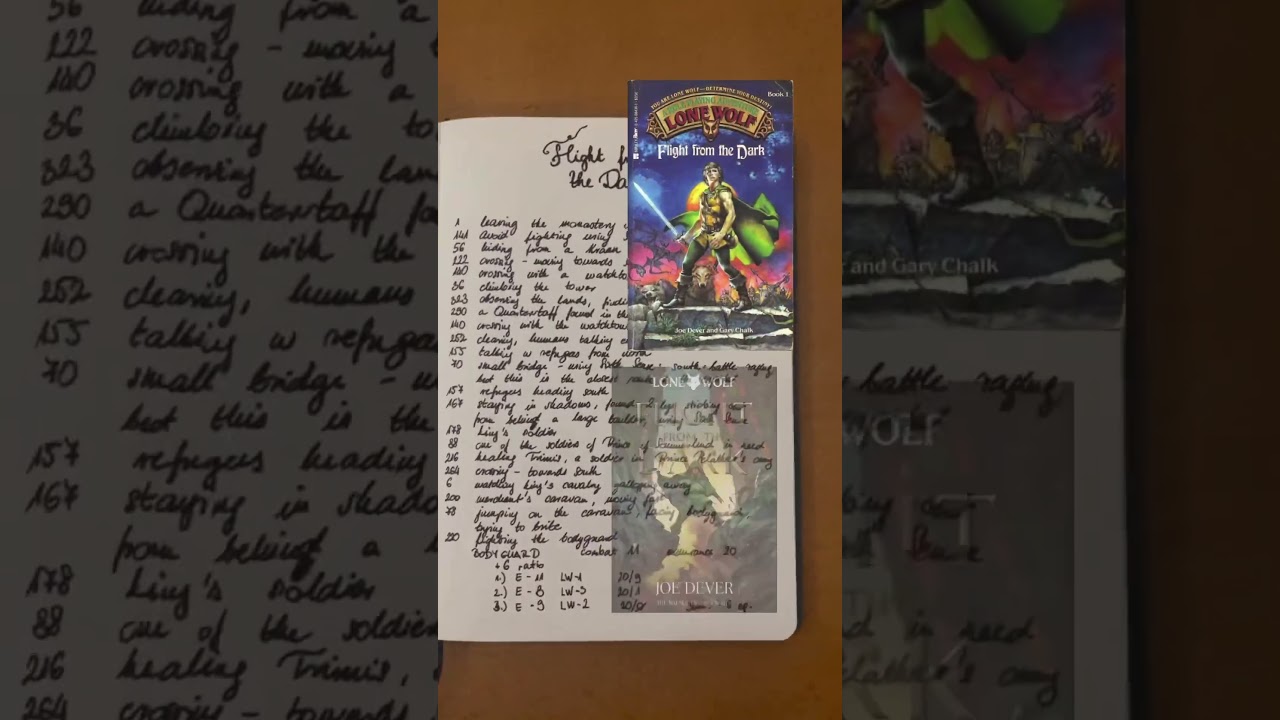 Flight
the
YOU ARE LONE WOLF—DETERMINE YOUR DESTINY!
Book 1
LONE WOLF
Flight from the Dark
Joe Dever and Gary Chalk
1 leaving the monastery
141 avoid fighting using
56 hiding from a Kraan
122 crossing - moving towards
140 crossing with a watchto
36 climbing the tower
323 observing the lands,
290 a Quarterstaff found in th
140 crossing with the watchtow
252 clearing, humans talking
155 talking w refugees from
70 small bridge - using Sixth Sense, south - battle raging
but this is the
157 refugees heading south
167 staying in shadows, found 2 legs sticking out
from behind a large
178 King's soldier
88 one of the soldiers of Prince of in need
216 healing Trimis, a soldier in Prince Pelathar's army
264 crossing - towards south
6 watching King's cavalry galloping away
200 merchant's caravan, moving fast
78 jumping on the caravan, facing bodyguard,
trying to bribe
220 fighting the bodyguard
BODYGUARD combat 11 endurance 20
+6 ratio
1.) E -11 LW-1 20/9
2.) E - 8 LW-3 20/1
3.) E - 9 LW-2 20/0
LONE WOLF
FLIGHT
FROM THE
DARK
JOE DEVER
56 hiding from a
122 crossing - moving
140 crossing with a
36 climbing the to
323 observing the lan
290 a Quarterstaff fou
140 crossing with the
252 clearing, humans
155 talking w refugee
70 small bridge - u
but this is the
157 refugees heading
167 staying in shado
from behind a
178 King's soldier
88 one of the soldier
216 healing Trimis,
264 crossing - towards
and Gary Chalk
battle raging
WOLF
out
in need
Pelathar's army